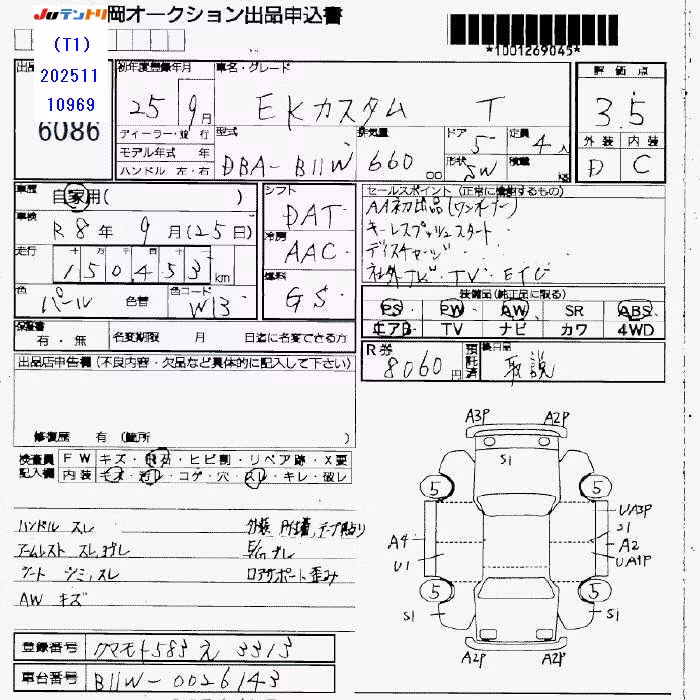 Juテントリ 岡オークション出品申込書
*1001269045*
(T1)
202511
10969
6086
初年度登録年月 車名・グレード
25年 9月 EKカスタム T
評価点
3.5
外装 内装
D C
ディーラー・並行
モデル年式 年
ハンドル 左・右
型式 排気量 ドア 定員
DBA-B11W 660 cc 5 4人
形状 積載
5W kg
車歴 自家用( )
車検 R8年 9月(25日)
走行 十 万 千 百 十
150453 km
色 色替 色コード
パール W13
シフト
DAT
冷房
AAC
燃料
GS
セールスポイント(正常に機能するもの)
AA初出品(ワンオーナー)
キーレスプッシュスタート・
ディスチャージ・
社外ナビ・TV・ETC
装備品(純正品に限る)
PS PW AW SR ABS
エアB TV ナビ カワ 4WD
保証書
有・無 名変期限 月 日迄に名変できる方
R券 預託済 後日品
8060円 取説
出品店申告欄(不良内容・欠品など具体的に記入して下さい)
修復歴 有(箇所 )
検査員記入欄
FW キズ・飛石・ヒビ割・リペア跡・X要
内装 キズ・汚レ・コゲ・穴・スレ・キレ・破レ
ハンドル スレ 外装 テープ貼り
アームレスト スレ,汚レ E/Gオイルモレ
シート シミ,スレ ロアサポート歪み
AW キズ
A3P A2P
S1
5 5
UA3P
S1
A4 A2
U1 UA1P
5 5
S1 S1
A2P A2P
登録番号 クマモト583え3313
車台番号 B11W-0026143